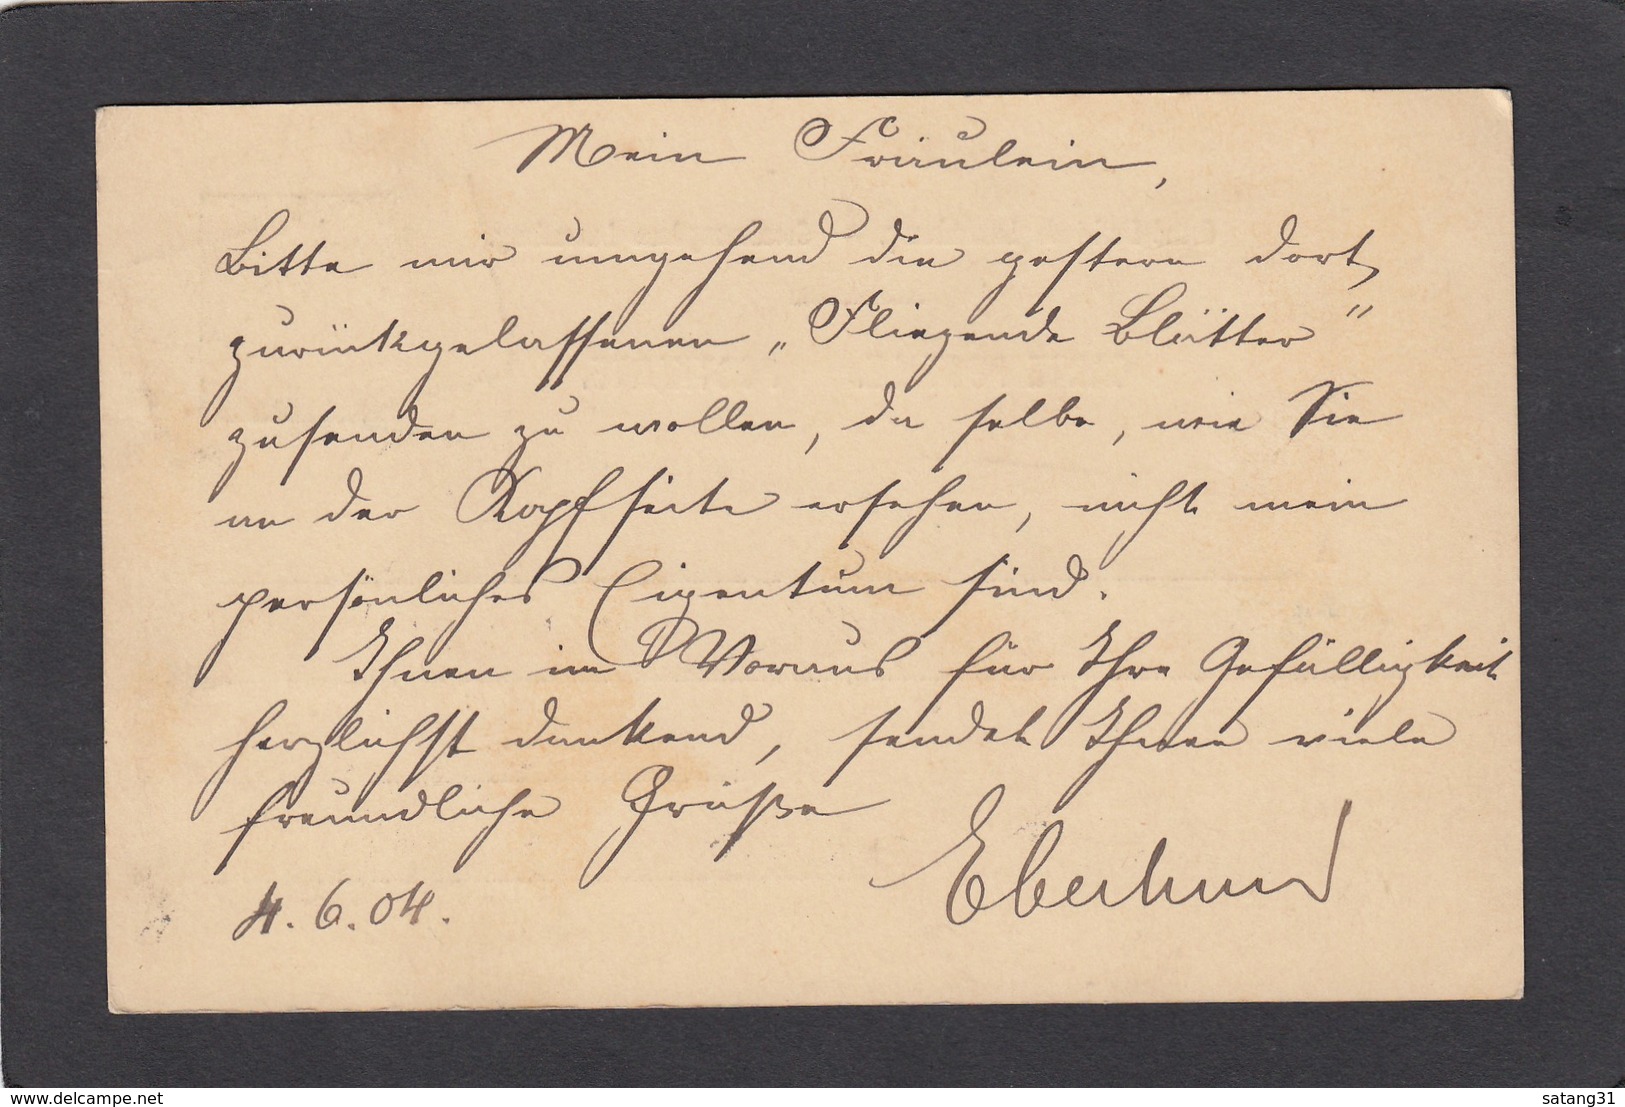 Mein Fräulein,
Bitte mir umgehend die gestern dort
zurückgelassenen „Fliegende Blätter"
zusenden zu wollen, da selbe, wie Sie
an der Kopfseite ersehen, nicht mein
persönliches Eigentum sind.
Ihnen im Voraus für Ihre Gefälligkeit
herzlichst dankend, sendet Ihnen viele
freundliche Grüße
Eberhard
4.6.04.
delcampe.com
satang31